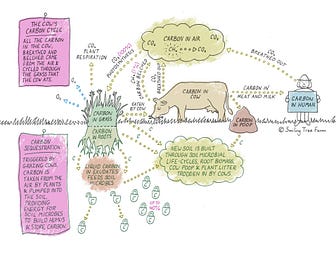 THE COW'S
CARBON CYCLE
ALL THE CARBON
IN THE COW,
BREATHED AND
BELCHED CAME
FROM THE AIR &
CYCLED THROUGH
THE GRASS THAT
THE COW ATE.
CO₂
PLANT
RESPIRATION
CO₂
PHOTOSYNTHESIS
CO₂
CARBON IN AIR
CO₂
CO₂
CO₂
BREATHED OUT
O₂
O₂
CARBON IN GRASS
CARBON
IN ROOTS
EATEN
BY COW
CARBON IN
COW
CARBON IN
MEAT AND MILK
CARBON
IN HUMAN
CARBON
IN POOP
© Smiling Tree Farm
CARBON
SEQUESTRATION
TRIGGERED BY
GRAZING COWS.
CARBON IS
TAKEN FROM THE
AIR BY PLANTS
& PUMPED INTO
THE SOIL
PROVIDING
ENERGY FOR
SOIL MICROBES
TO BUILD HUMUS
& STORE CARBON.
LIQUID CARBON
IN EXUDATES
FEEDS SOIL
MICROBES
NEW SOIL IS BUILT
THROUGH SOIL MICROBIAL
LIFE-CYCLES, ROOT BIOMASS,
COW POOP & PLANT LITTER
TRODDEN IN BY COWS